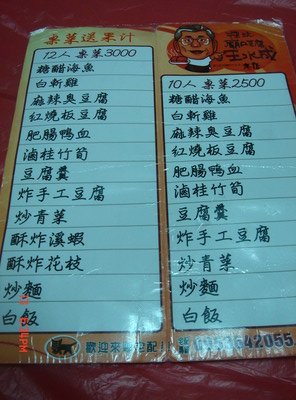 桌菜送果汁
12人桌菜3000
糖醋海魚
白斬雞
麻辣臭豆腐
紅燒板豆腐
肥腸鴨血
滷桂竹筍
豆腐羹
炸手工豆腐
炒青菜
酥炸溪蝦
酥炸花枝
炒麵
白飯
歡迎來電宅配
10人桌菜2500
糖醋海魚
白斬雞
麻辣臭豆腐
紅燒板豆腐
肥腸鴨血
滷桂竹筍
豆腐羹
炸手工豆腐
炒青菜
炒麵
白飯